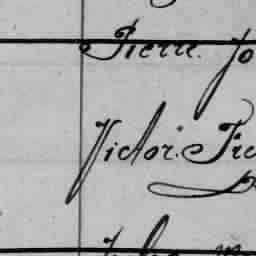 Pierre. Jo
Victor. Fre